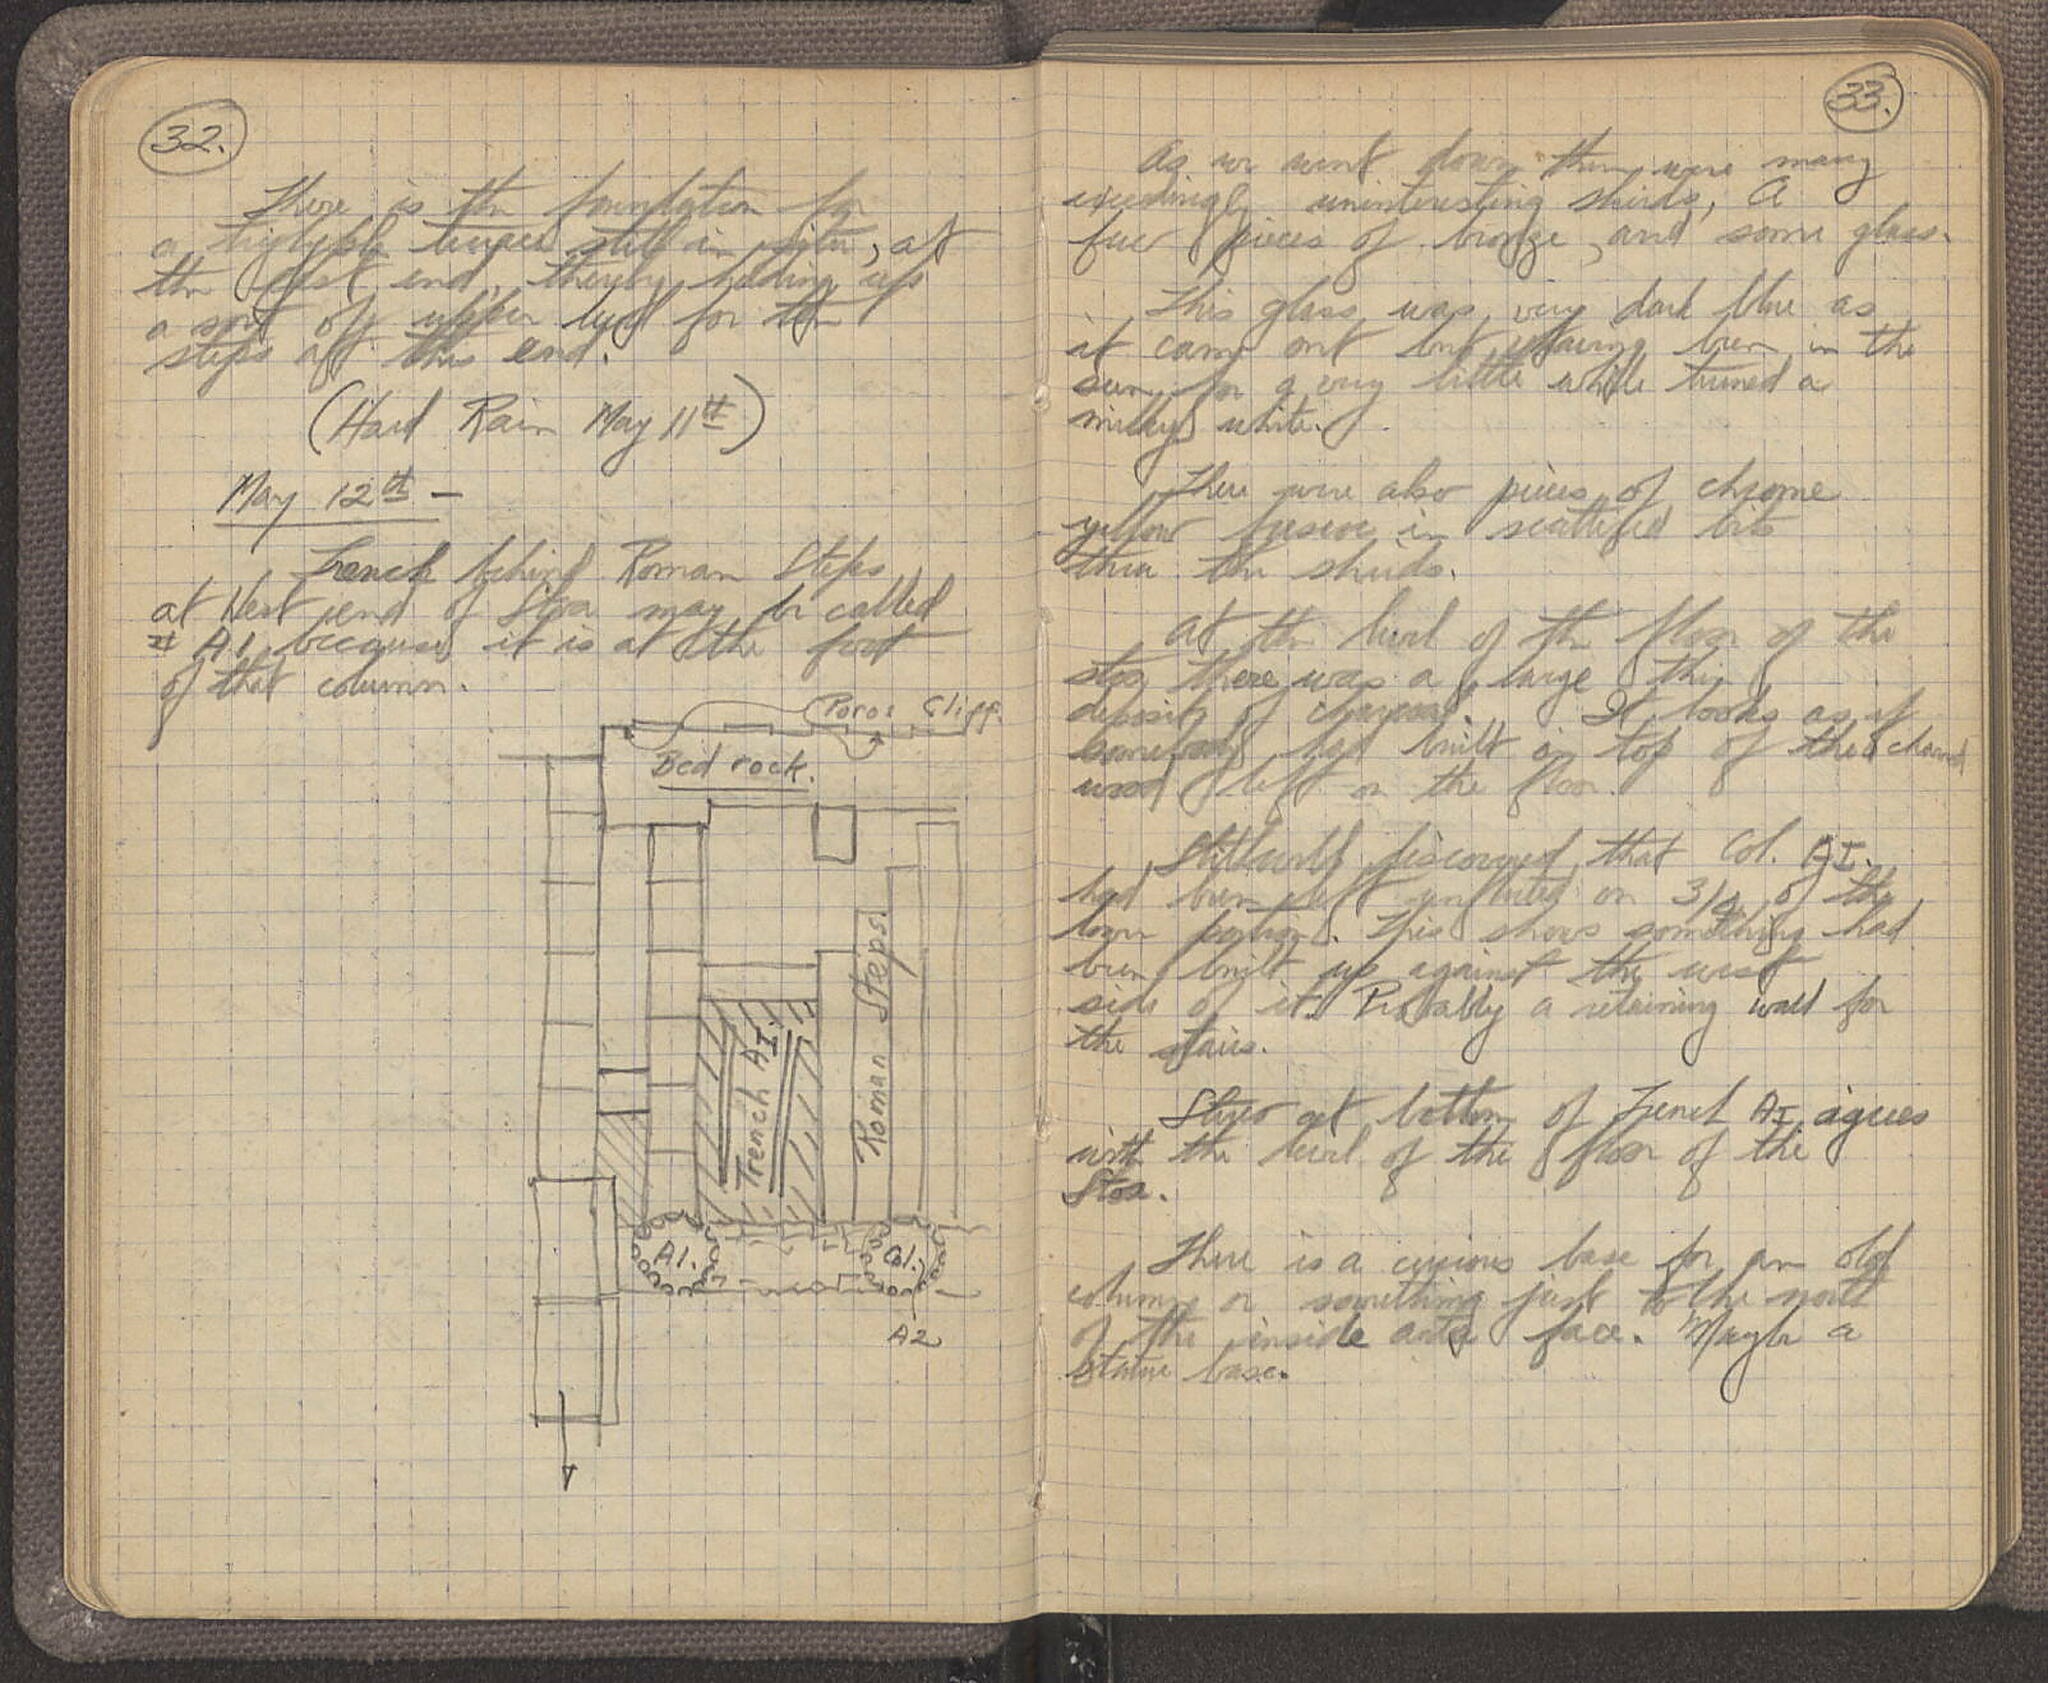 32.
There is the foundation for
a triglyph terrace still in situ, at
the East end, thereby holding up
a sort of upper level for the
steps at this end.
(Hard Rain May 11th)
May 12th -
Trench behind Roman Steps
at West end of Stoa may be called
A1, because it is at the foot
of that column.
Poros Cliff.
Bed rock.
Trench A I.
Roman Steps.
A1.
Col.
A2
33.
As we went down there were many
exceedingly uninteresting sherds, a
few pieces of bronze, and some glass.
This glass was very dark blue as
it came out but, having been in the
sun for a very little while turned a
milky white.
There were also pieces of chrome
yellow in scattered bits
thru the sherds.
At the level of the floor of the
stoa there was a large thin
deposit of charcoal. It looks as if
somebody had built on top of the charred
wood left on the floor.
Stillwell discovered that Col. AI.
had been left unfluted on 3/4 of the
lower portion. This shows something had
been built up against the west
side of it. Probably a retaining wall for
the stairs.
Stereo at bottom of Trench AI agrees
with the level of the floor of the
Stoa.
There is a curious base for an old
column or something just to the north
of the inside anta face. Maybe a
statue base.